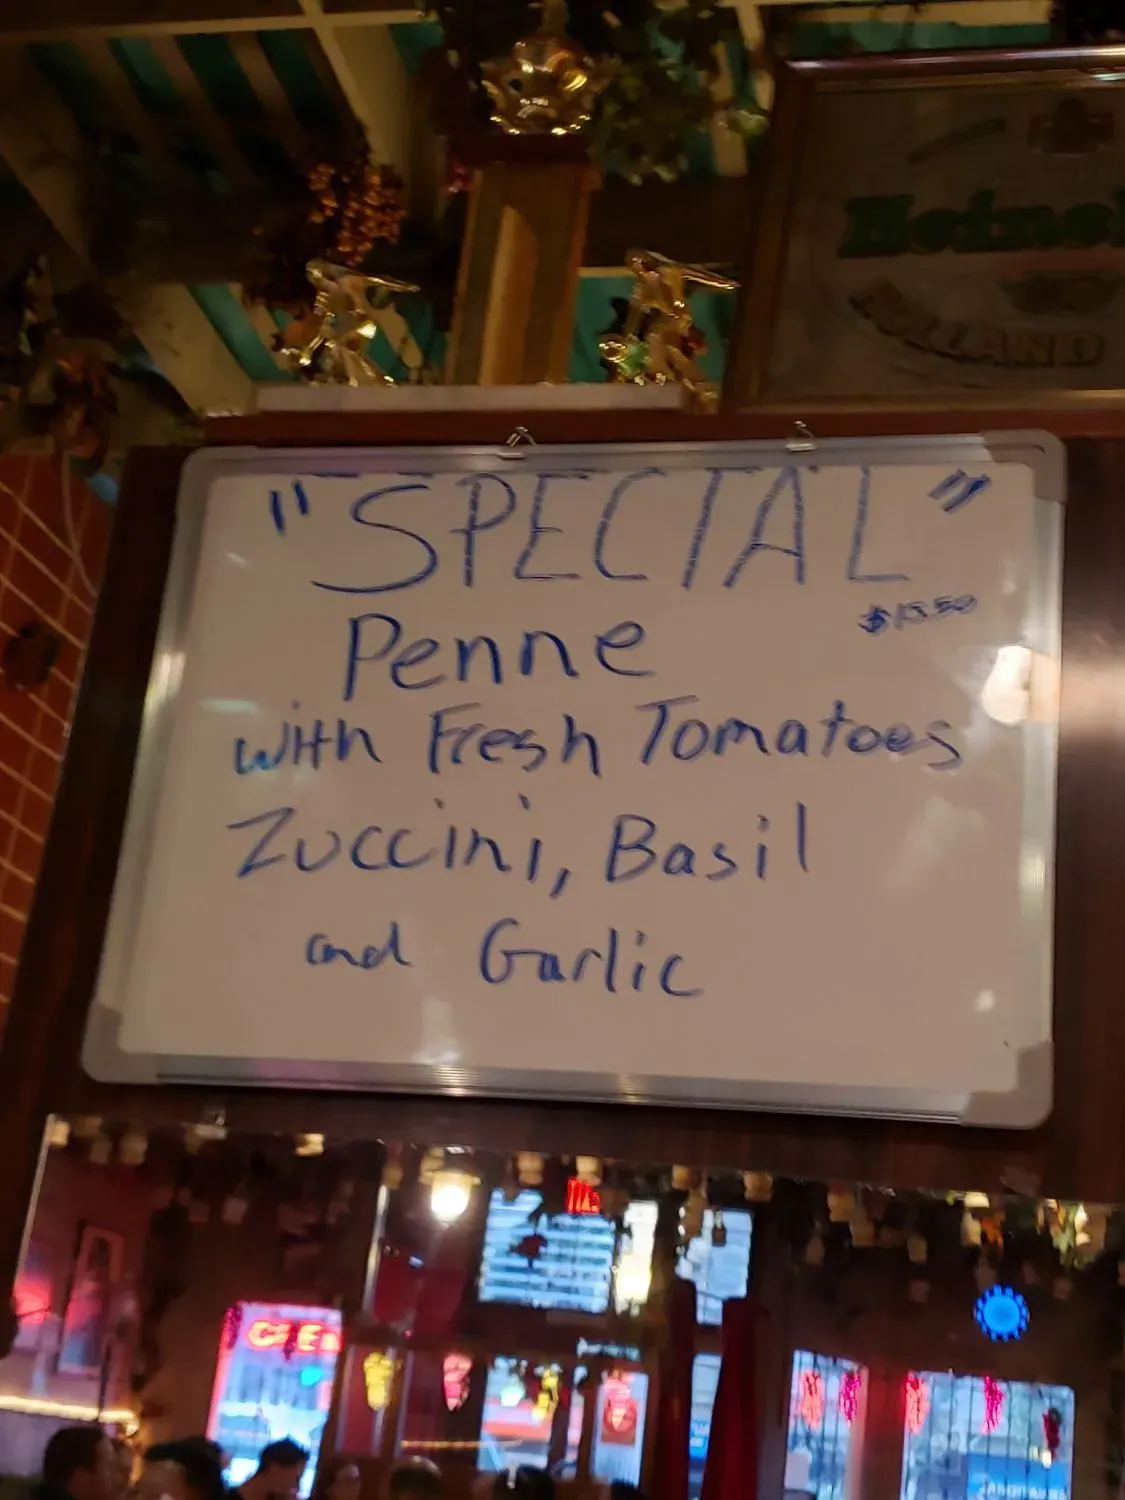 Heine
HOLLAND
"SPECIAL"
$15.50
Penne
with Fresh Tomatoes
Zuccini, Basil
and Garlic